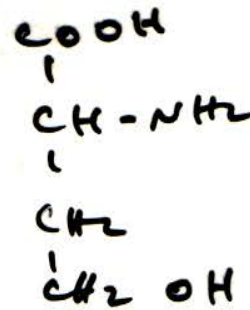 COOH
CH-NH2
CH2
CH2 OH